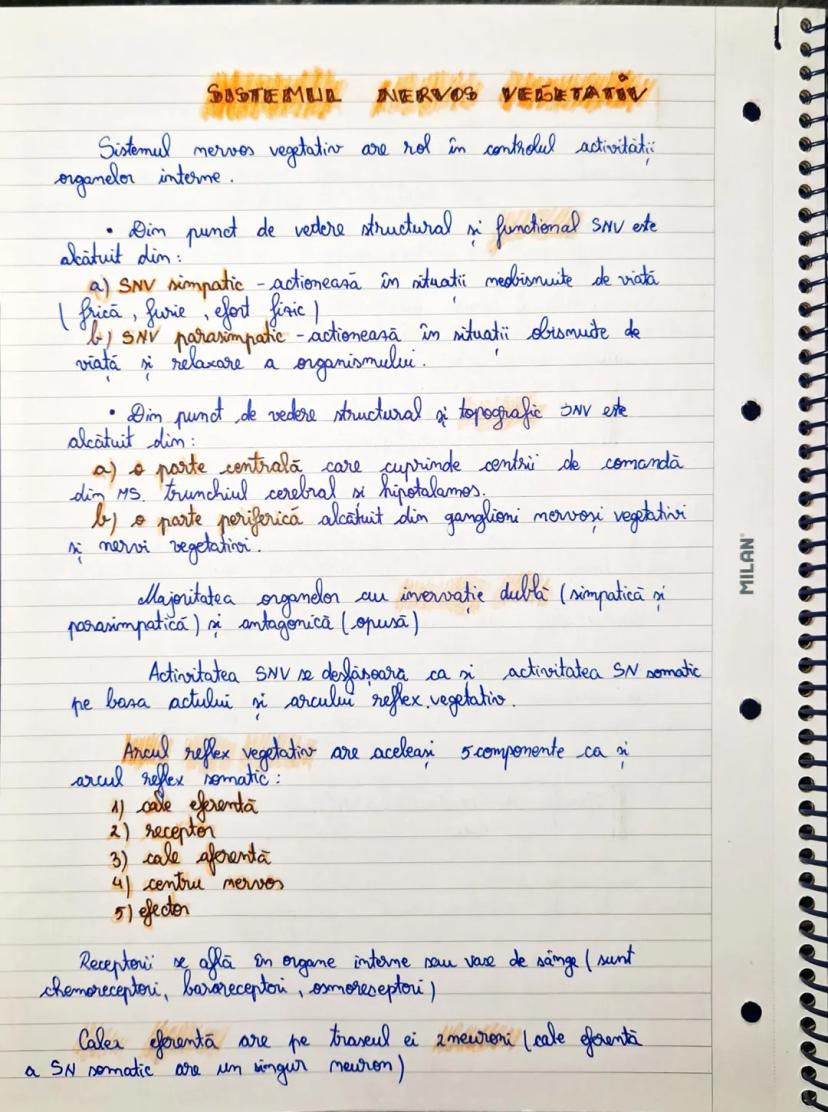 SISTEMUL NERVOS VEGETATIV
Sistemul nervos vegetativ are rol în controlul activității
organelor interne.
• Din punct de vedere structural și functional SNV este
alcătuit din:
a) SNV simpatic - actionează în situații neobisnuite de viată
(frică, furie, efort fizic)
b) SNV parasimpatic - actionează în situații obisnuite de
viață și relaxare a organismului.
• Din punct de vedere structural și topografic SNV este
alcătuit din:
a) o parte centrală care cuprinde centrii de comandă
din MS. trunchiul cerebral si hipotalamos.
b) o parte periferică alcătuit din ganglioni nervoși vegetativi
și nervi vegetativi.
Majoritatea organelor au inervație dublă (simpatică și
parasimpatică) și antagonică (opusă)
Activitatea SNV se desfășoară ca și activitatea SN somatic
pe baza actului și arcului reflex vegetativ.
Arcul reflex vegetativ are aceleași 5 componente ca și
arcul reflex somatic:
1) cale eferentă
2) receptor
3) cale aferentă
4) centru nervos
5) efector
Receptorii se află în organe interne sau vase de sânge (sunt
chemoreceptori, baroreceptori, osmoreseptori)
Calea eferentă are pe traseul ei 2 neuroni (cale eferentă
a SN somatic are un singur neuron)
MILAN